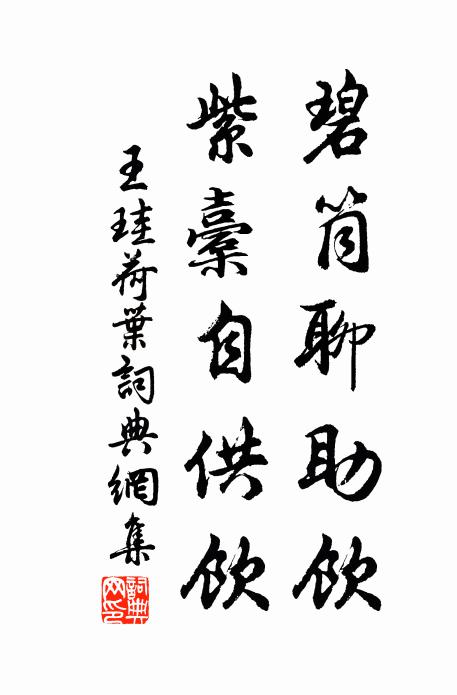 碧筒聊助飲
紫橐自供飲
王珪荷葉詞典網集